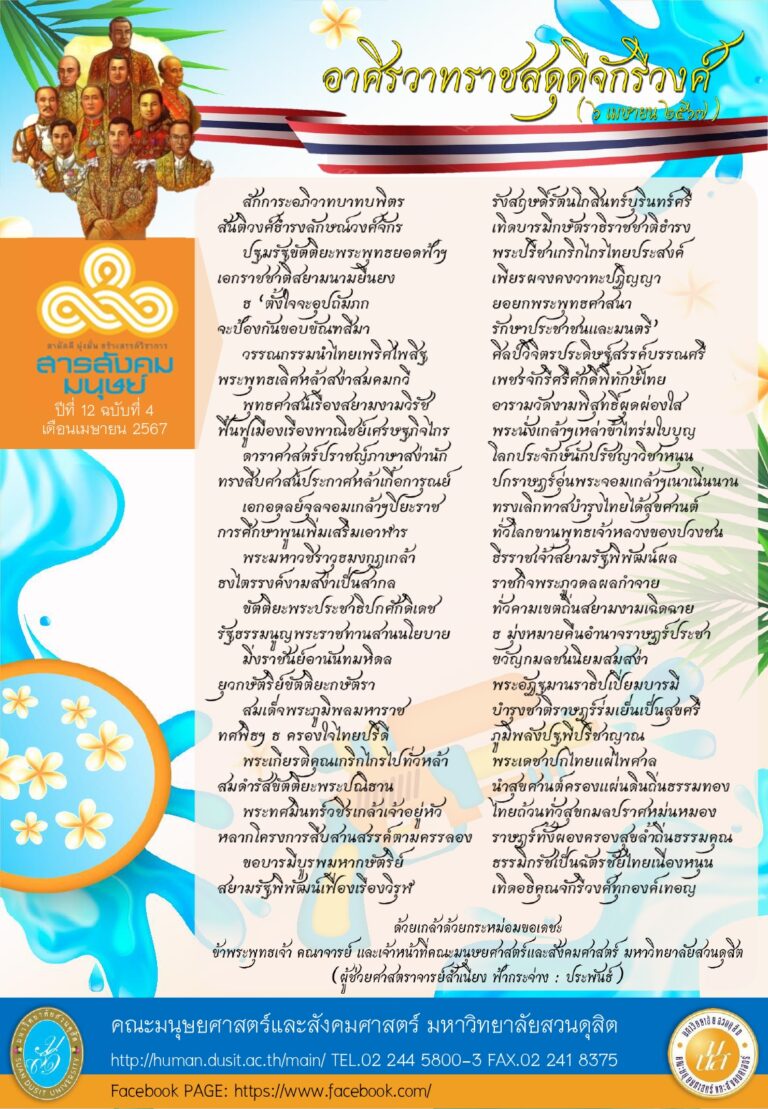 อาศิรวาทราชสดุดีจักรีวงศ์
( ๖ เมษายน ๒๕๖๗ )
สามัคคี มุ่งมั่น สร้างสรรค์วิชาการ
สารสังคม
มนุษย์
ปีที่ 12 ฉบับที่ 4
เดือนเมษายน 2567
สักการะอภิวาทบาทบพิตร รังสฤษดิ์รัตนโกสินทร์บุรินทร์ศรี
สันติวงศ์ธำรงลักษณ์วงศ์จักร เทิดบารมีกษัตราธิราชชาติธำรง
ปฐมรัฐขัตติยะพระพุทธยอดฟ้าฯ พระปรีชาเกริกไกรไทยประสงค์
เอกราชชาติสยามนามยืนยง เพียรผจงคงวาทะปฏิญญา
ธ ‘ตั้งใจจะอุปถัมภก ยอยกพระพุทธศาสนา
จะป้องกันขอบขัณฑสีมา รักษาประชาชนและมนตรี’
วรรณกรรมนำไทยเพริศไพสิฐ ศิลป์วิจิตรประดิษฐ์สรรค์บรรณศรี
พระพุทธเลิศหล้าสง่าสมคมกวี เพชรจักรีศรีศักดิ์พิทักษ์ไทย
พุทธศาสน์เรืองสยามงามวิรัช อารามวัดงามพิสุทธิ์ผุดผ่องใส
ฟื้นฟูเมืองเรืองพาณิชย์เศรษฐกิจไกร พระนั่งเกล้าฯเหล่าข้าไทร่มใบบุญ
ดาราศาสตร์ปราชญ์ภาษาสง่านัก โลกประจักษ์นักปรัชญาวิชาหนุน
ทรงสืบศาสน์ประกาศหล้าเกื้อการุณย์ ปกราษฎร์อุ่นพระจอมเกล้าฯเนาเนิ่นนาน
เอกอดุลย์จุลจอมเกล้าฯปิยะราช ทรงเลิกทาสบำรุงไทยได้สุขศานต์
การศึกษาพูนเพิ่มเสริมอาหาร ทั่วโลกขานพุทธเจ้าหลวงของปวงชน
พระมหาวชิราวุธมงกุฎเกล้า ธีรราชเจ้าสยามรัฐพิพัฒน์ผล
ธงไตรรงค์งามสง่าเป็นสากล ราชกิจพระภูวดลผลกำจาย
ขัตติยะพระประชาธิปกศักดิเดช ทั่วคามเขตถิ่นสยามงามเฉิดฉาย
รัฐธรรมนูญพระราชทานสานนโยบาย ธ มุ่งหมายคืนอำนาจราษฎร์ประชา
มิ่งราชันย์อานันทมหิดล ขวัญกมลชนนิยมสมสง่า
ยุวกษัตริย์ขัตติยะกษัตรา พระอัฏฐมานราธิปเปี่ยมบารมี
สมเด็จพระภูมิพลมหาราช บำรุงชาติราษฎร์ร่มเย็นเป็นสุขศรี
ทศพิธฯ ธ ครองใจไทยปรีดิ์ ภูมิพลังปฐพีปรีชาญาณ
พระเกียรติคุณเกริกไกรไปทั่วหล้า พระเดชาปกไทยแผ่ไพศาล
สมดำรัสขัตติยะพระปณิธาน นำสุขศานต์ครองแผ่นดินถิ่นธรรมทอง
พระทศมินทร์วชิรเกล้าเจ้าอยู่หัว ไทยถ้วนทั่วสุขกมลปราศหม่นหมอง
หลากโครงการสืบสานสรรค์ตามครรลอง ราษฎร์ทั้งผองครองสุขล้ำถิ่นธรรมคุณ
ขอบารมีบูรพมหากษัตริย์ ธรรมิกรัชเป็นฉัตรชัยไทยเนื่องหนุน
สยามรัฐพิพัฒน์เฟื่องเรืองวิรุฬ เทิดอธิคุณจักรีวงศ์ทุกองค์เทอญ
ด้วยเกล้าด้วยกระหม่อมขอเดชะ
ข้าพระพุทธเจ้า คณาจารย์ และเจ้าหน้าที่คณะมนุษยศาสตร์และสังคมศาสตร์ มหาวิทยาลัยสวนดุสิต
(ผู้ช่วยศาสตราจารย์สำเนียง ฟ้ากระจ่าง : ประพันธ์)
คณะมนุษยศาสตร์และสังคมศาสตร์ มหาวิทยาลัยสวนดุสิต
http://human.dusit.ac.th/main/ TEL.02 244 5800-3 FAX.02 241 8375
Facebook PAGE: https://www.facebook.com/